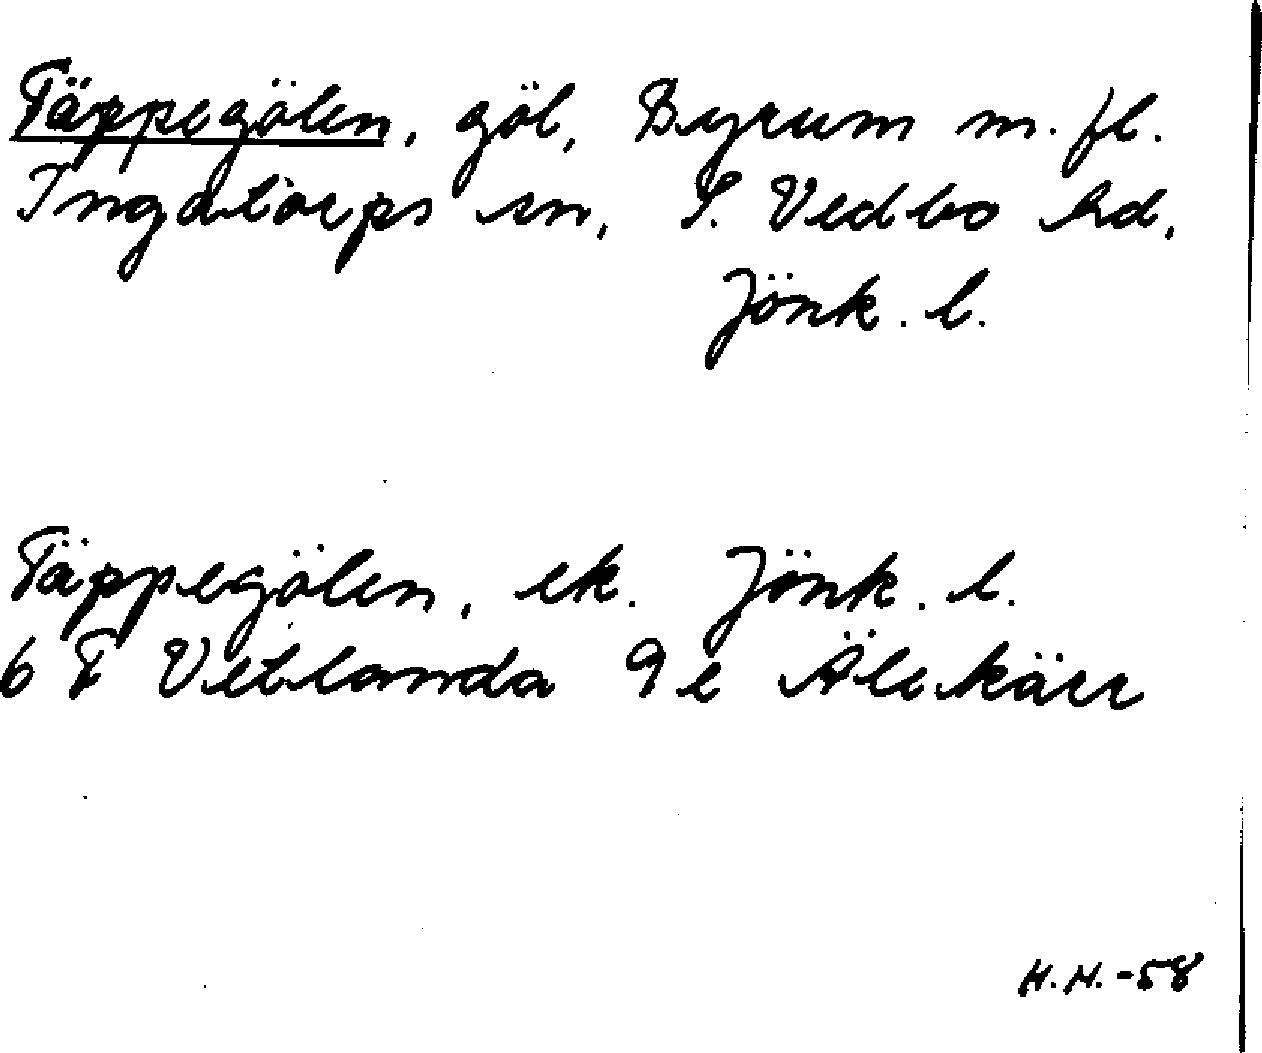 Täppegölen, göl, Byrum m. fl.
Ingatorps sn, S. Vedbo hd,
Jönk. l.
Täppegölen, ek. Jönk. l.
6 F Vetlanda 9 e Älekärr
H.H.-58